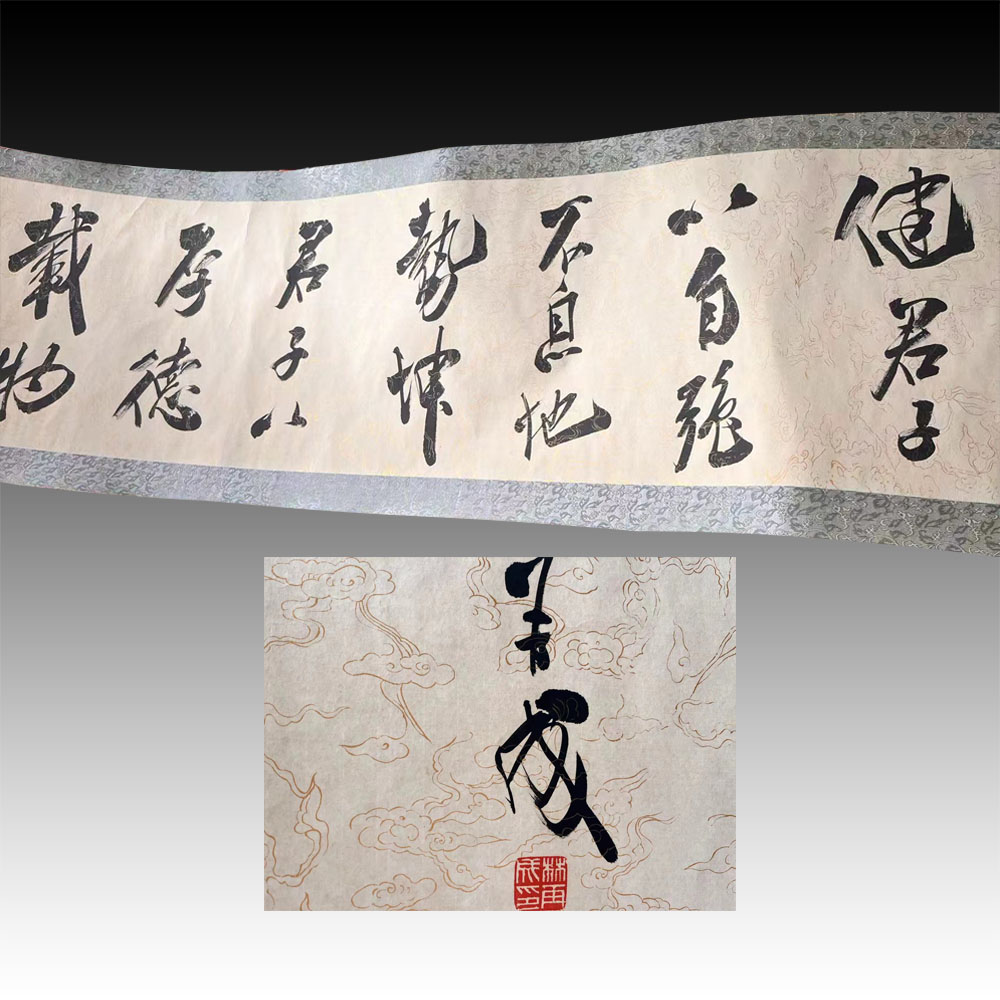 健君子
以自強
不息地
勢坤
君子以
厚德
載物
成
林
成印